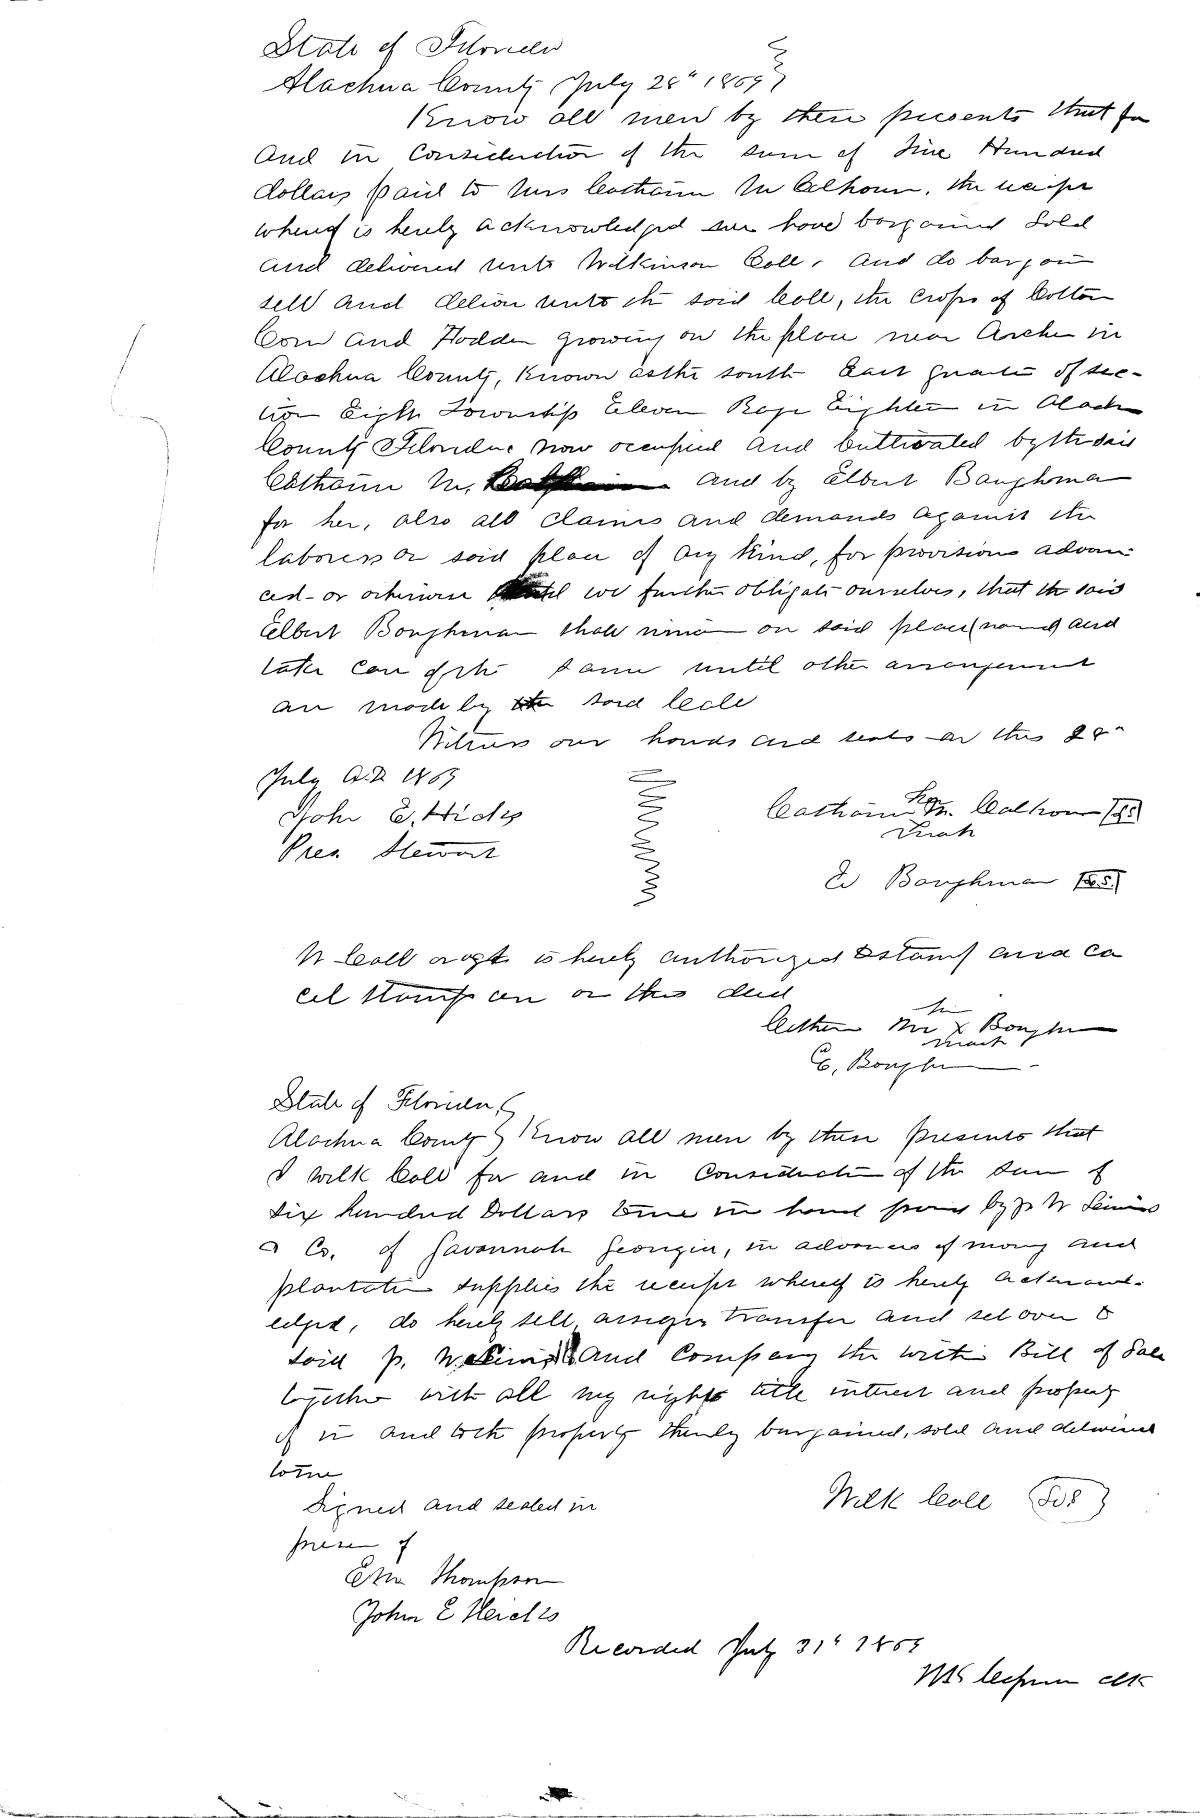 State of Florida
Alachua County July 28" 1869
Know all men by these presents that for
and in consideration of the sum of Five Hundred
dollars paid to Mrs Catharin M Calhoun, the receipt
whereof is hereby acknowledged we have bargained Sold
and delivered unto Wilkinson Call, and do bargain
sell and deliver unto the said Call, the crops of Cotton
Corn and Fodder growing on the place near Archer in
Alachua County, Known as the south East quarter of sec-
tion Eight Township Eleven Rage Eighteen in Alach
County Florida now occupied and Cultivated by the said
Catharin M. and by Elbert Baughman
for her, also all claims and demands against the
laborers on said place of any Kind, for provisions advan-
ced or otherwise we further obligate ourselves, that the said
Elbert Boughman shall remain on said place (named) and
take care of the same until other arrangement
are made by said Call
Witness our hands and seals on this 28"
July A.D. 1869
John E. Hicks
Pres. Stewart
Catharin her M. Calhoun L.S.
mark
E Boughman L.S.
W Call or agt is hereby authorized to stamp and ca
cel stamp on this deed
her
Cathern M x Boughm
mark
E, Boughm
State of Florida,
Alachua County Know all men by these presents that
I Wilk Call for and in consideration of the sum of
six hundred Dollars to me in hand paid by
& Co. of Savannah Georgia, in advances of money and
plantation supplies the receipt whereof is hereby acknowl-
edged, do hereby sell, assign transfer and set over to
said and Company the within Bill of Sale
together with all my right title interest and property
of in and to the property thereby bargained, sold and delivered
to me
Signed and sealed in
presen of
Wilk Call
Thompson
John E Heicks
Recorded July 31" 1869
clk